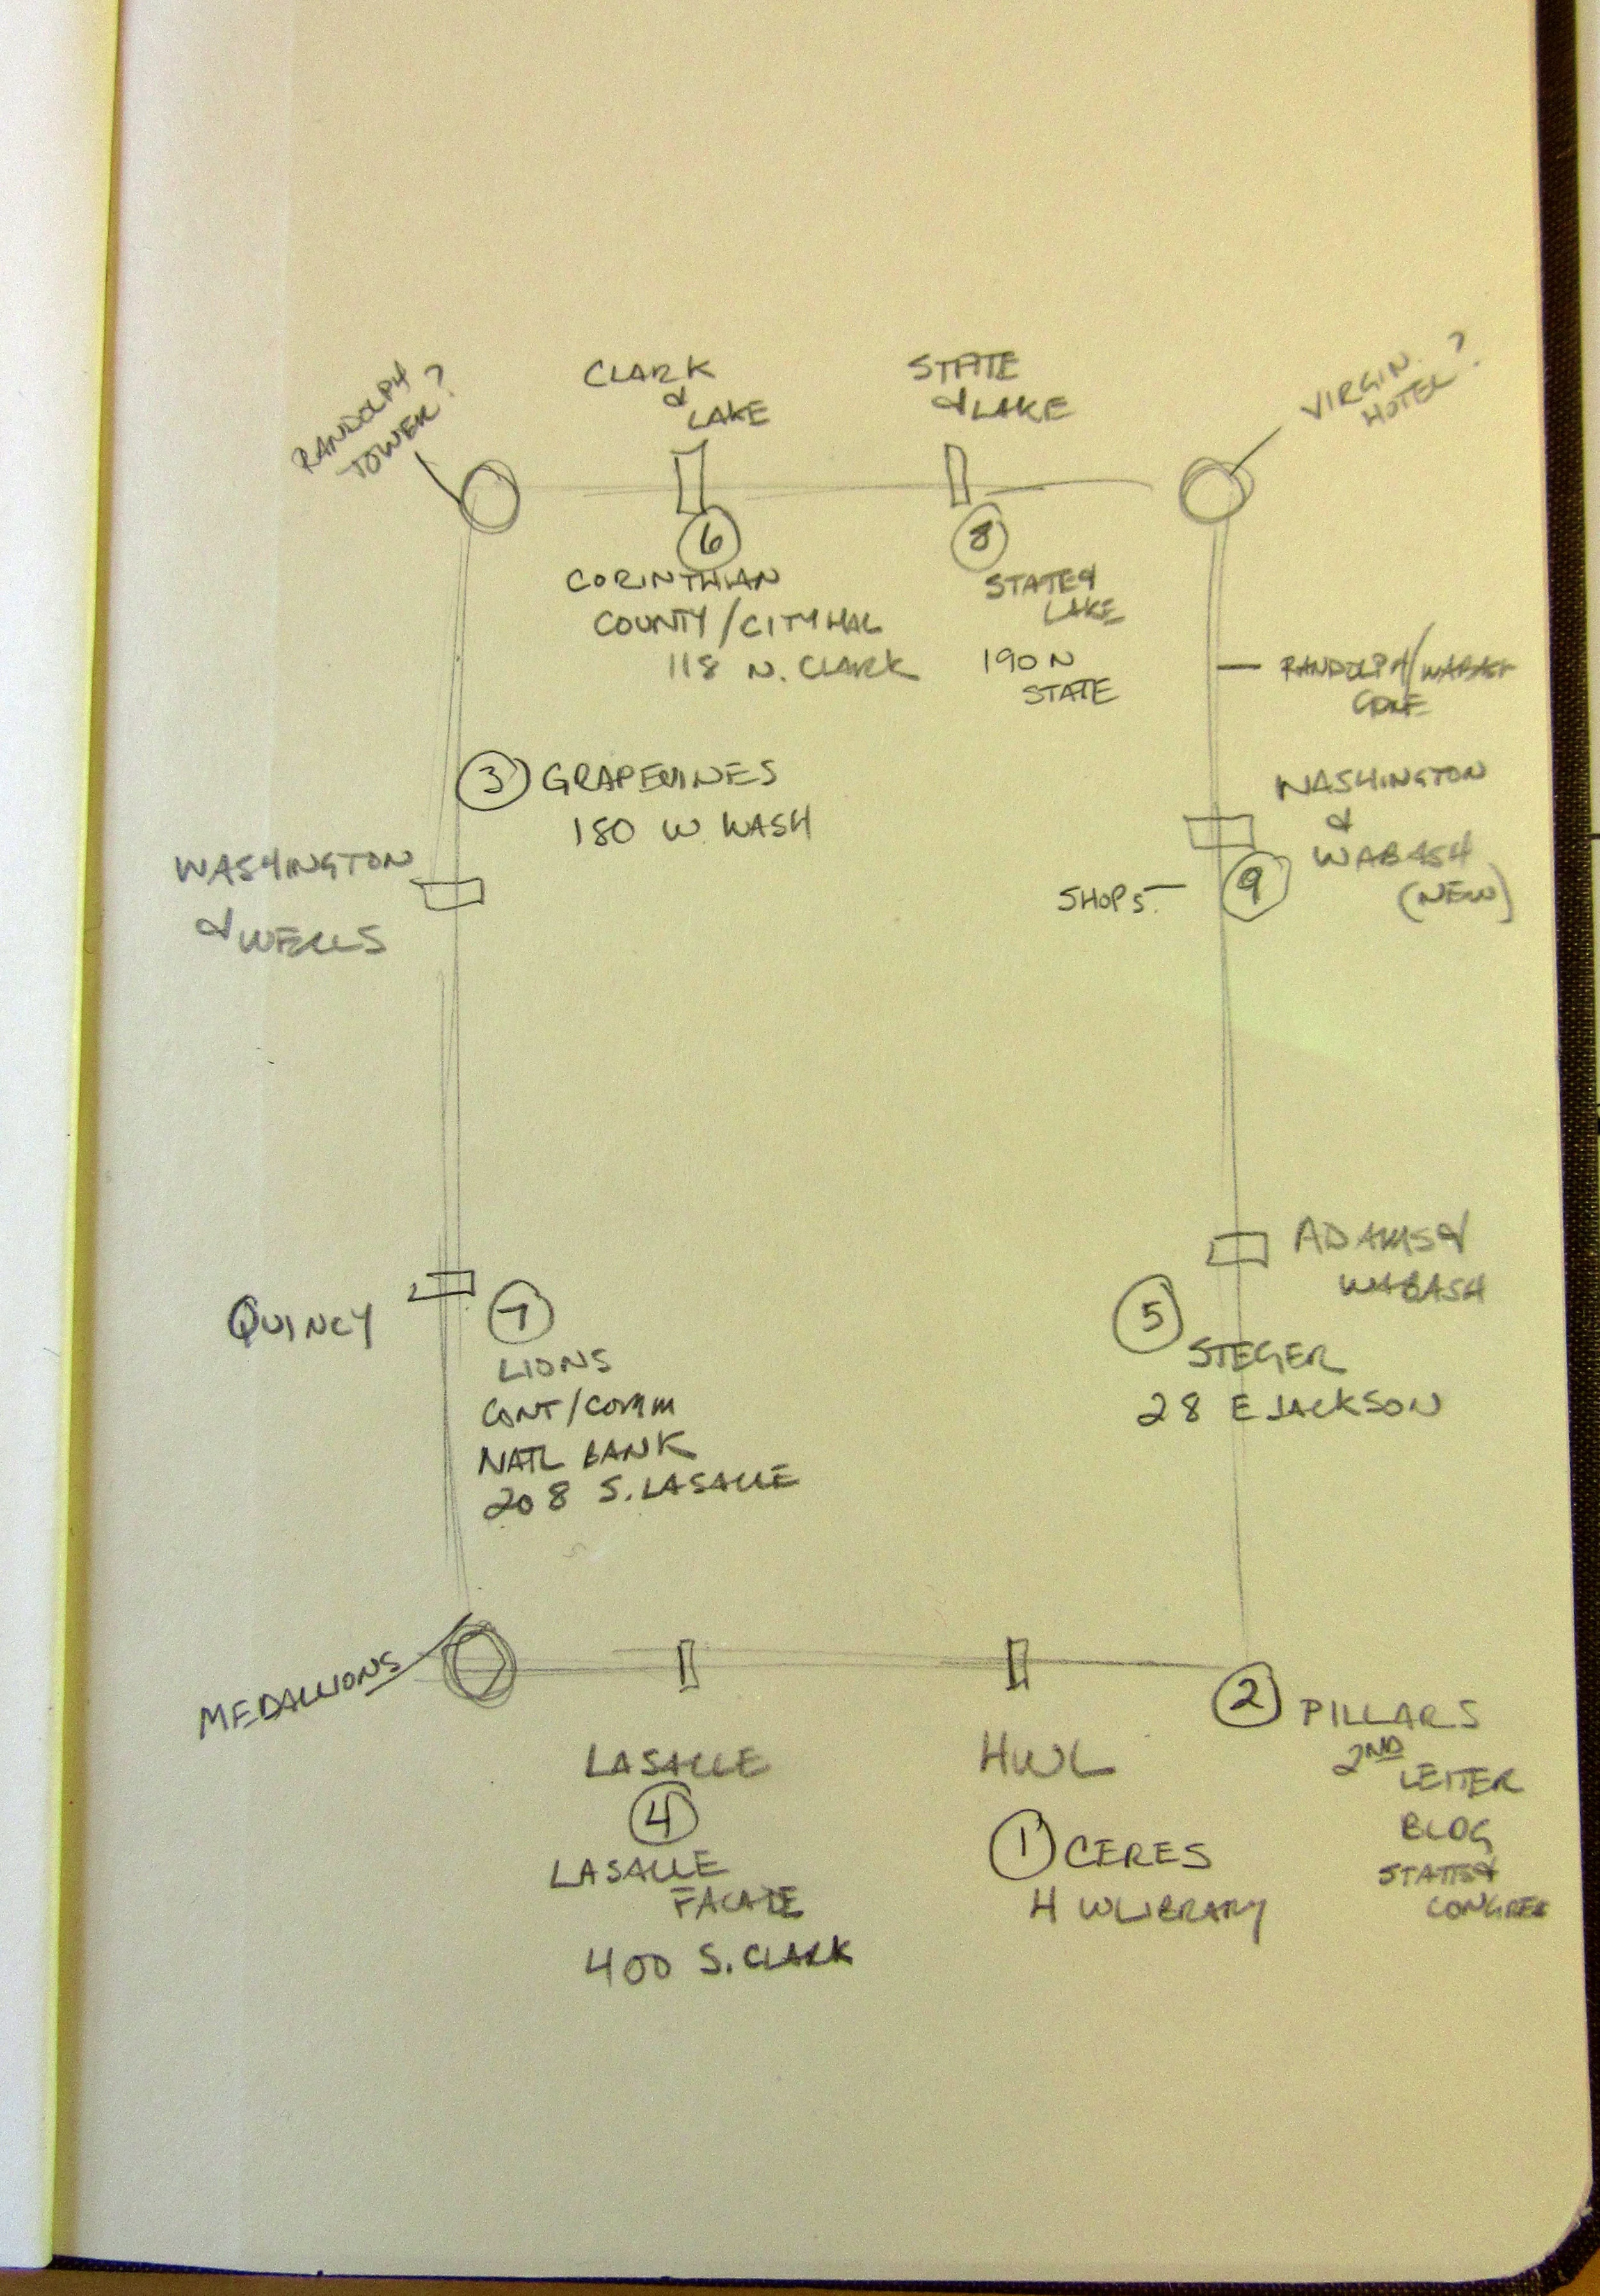 RANDOLPH
TOWER?
CLARK
&
LAKE
STATE
& LAKE
VIRGIN ?
HOTEL
6
CORINTHIAN
COUNTY/CITY HAL
118 N. CLARK
8
STATE &
LAKE
190 N
STATE
RANDOLPH/WABASH
3 GRAPEVINES
180 W. WASH
WASHINGTON
& WELLS
WASHINGTON
&
WABASH
(NEW)
SHOPS
9
QUINCY
7
LIONS
CONT/COMM
NATL BANK
208 S. LASALLE
ADAMS &
WABASH
5
STEGER
28 E JACKSON
MEDALLIONS
LASALLE
4
LASALLE
FACADE
400 S. CLARK
HWL
1 CERES
H W LIBRARY
2 PILLARS
2ND
LEITER
BLDG
STATE &
CONGRESS